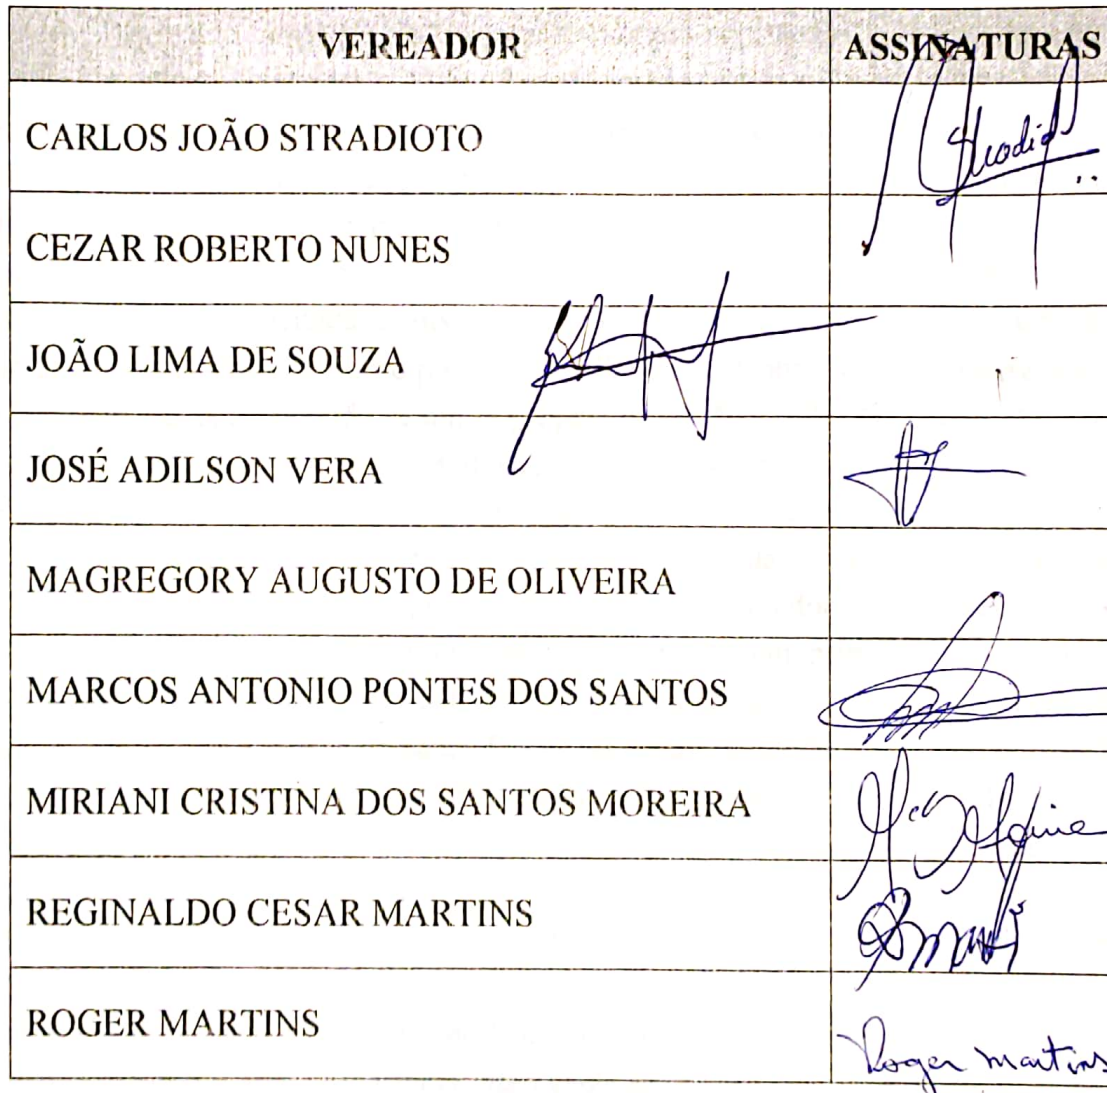 VEREADOR ASSINATURAS
CARLOS JOÃO STRADIOTO
CEZAR ROBERTO NUNES
JOÃO LIMA DE SOUZA
JOSÉ ADILSON VERA
MAGREGORY AUGUSTO DE OLIVEIRA
MARCOS ANTONIO PONTES DOS SANTOS
MIRIANI CRISTINA DOS SANTOS MOREIRA
REGINALDO CESAR MARTINS
ROGER MARTINS Roger Martins